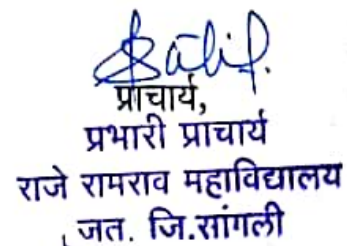 प्राचार्य,
प्रभारी प्राचार्य
राजे रामराव महाविद्यालय
जत. जि.सांगली